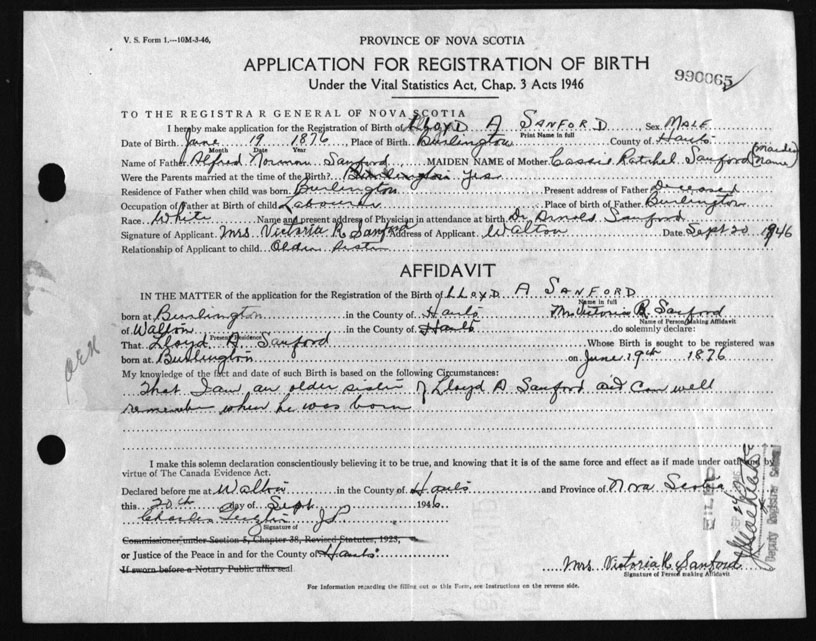 V. S. Form 1.—10M-3-46,
PROVINCE OF NOVA SCOTIA
APPLICATION FOR REGISTRATION OF BIRTH
Under the Vital Statistics Act, Chap. 3 Acts 1946
990065
TO THE REGISTRAR GENERAL OF NOVA SCOTIA
I hereby make application for the Registration of Birth of LLOYD A SANFORD, Sex MALE
Print Name in full
Date of Birth June 19 1876, Place of Birth Burlington County of Hants
Month Date Year
Name of Father Alfred Norman Sanford, MAIDEN NAME of Mother Cassie Ratchel Sanford (maiden name)
Were the Parents married at the time of the Birth? Burlington yes
Residence of Father when child was born Burlington Present address of Father Deceased
Occupation of Father at Birth of child Labourer Place of birth of Father Burlington
Race White Name and present address of Physician in attendance at birth Dr Arnold Sanford
Signature of Applicant Mrs Victoria R Sanford Address of Applicant Walton Date Sept 20 1946
Relationship of Applicant to child Older sister
AFFIDAVIT
IN THE MATTER of the application for the Registration of the Birth of LLOYD A SANFORD
Name in full
born at Burlington in the County of Hants Mrs Victoria R. Sanford
Name of Person Making Affidavit
of Walton in the County of Hants do solemnly declare:
Present Residence
That Lloyd A Sanford Whose Birth is sought to be registered was
born at Burlington on June 19th 1876
My knowledge of the fact and date of such Birth is based on the following Circumstances:
That I am an older sister of Lloyd A Sanford and can well
remember when he was born
I make this solemn declaration conscientiously believing it to be true, and knowing that it is of the same force and effect as if made under oath and by
virtue of The Canada Evidence Act.
Declared before me at Walton in the County of Hants and Province of Nova Scotia
this 20th day of Sept 1946
Charles J.P.
Signature of
Commissioner under Section 5, Chapter 38, Revised Statutes, 1923,
or Justice of the Peace in and for the County of Hants
If sworn before a Notary Public affix seal
Mrs. Victoria R. Sanford
Signature of Person making Affidavit
FILED
Deputy Registrar General
For Information regarding the filling out of this Form, see Instructions on the reverse side.